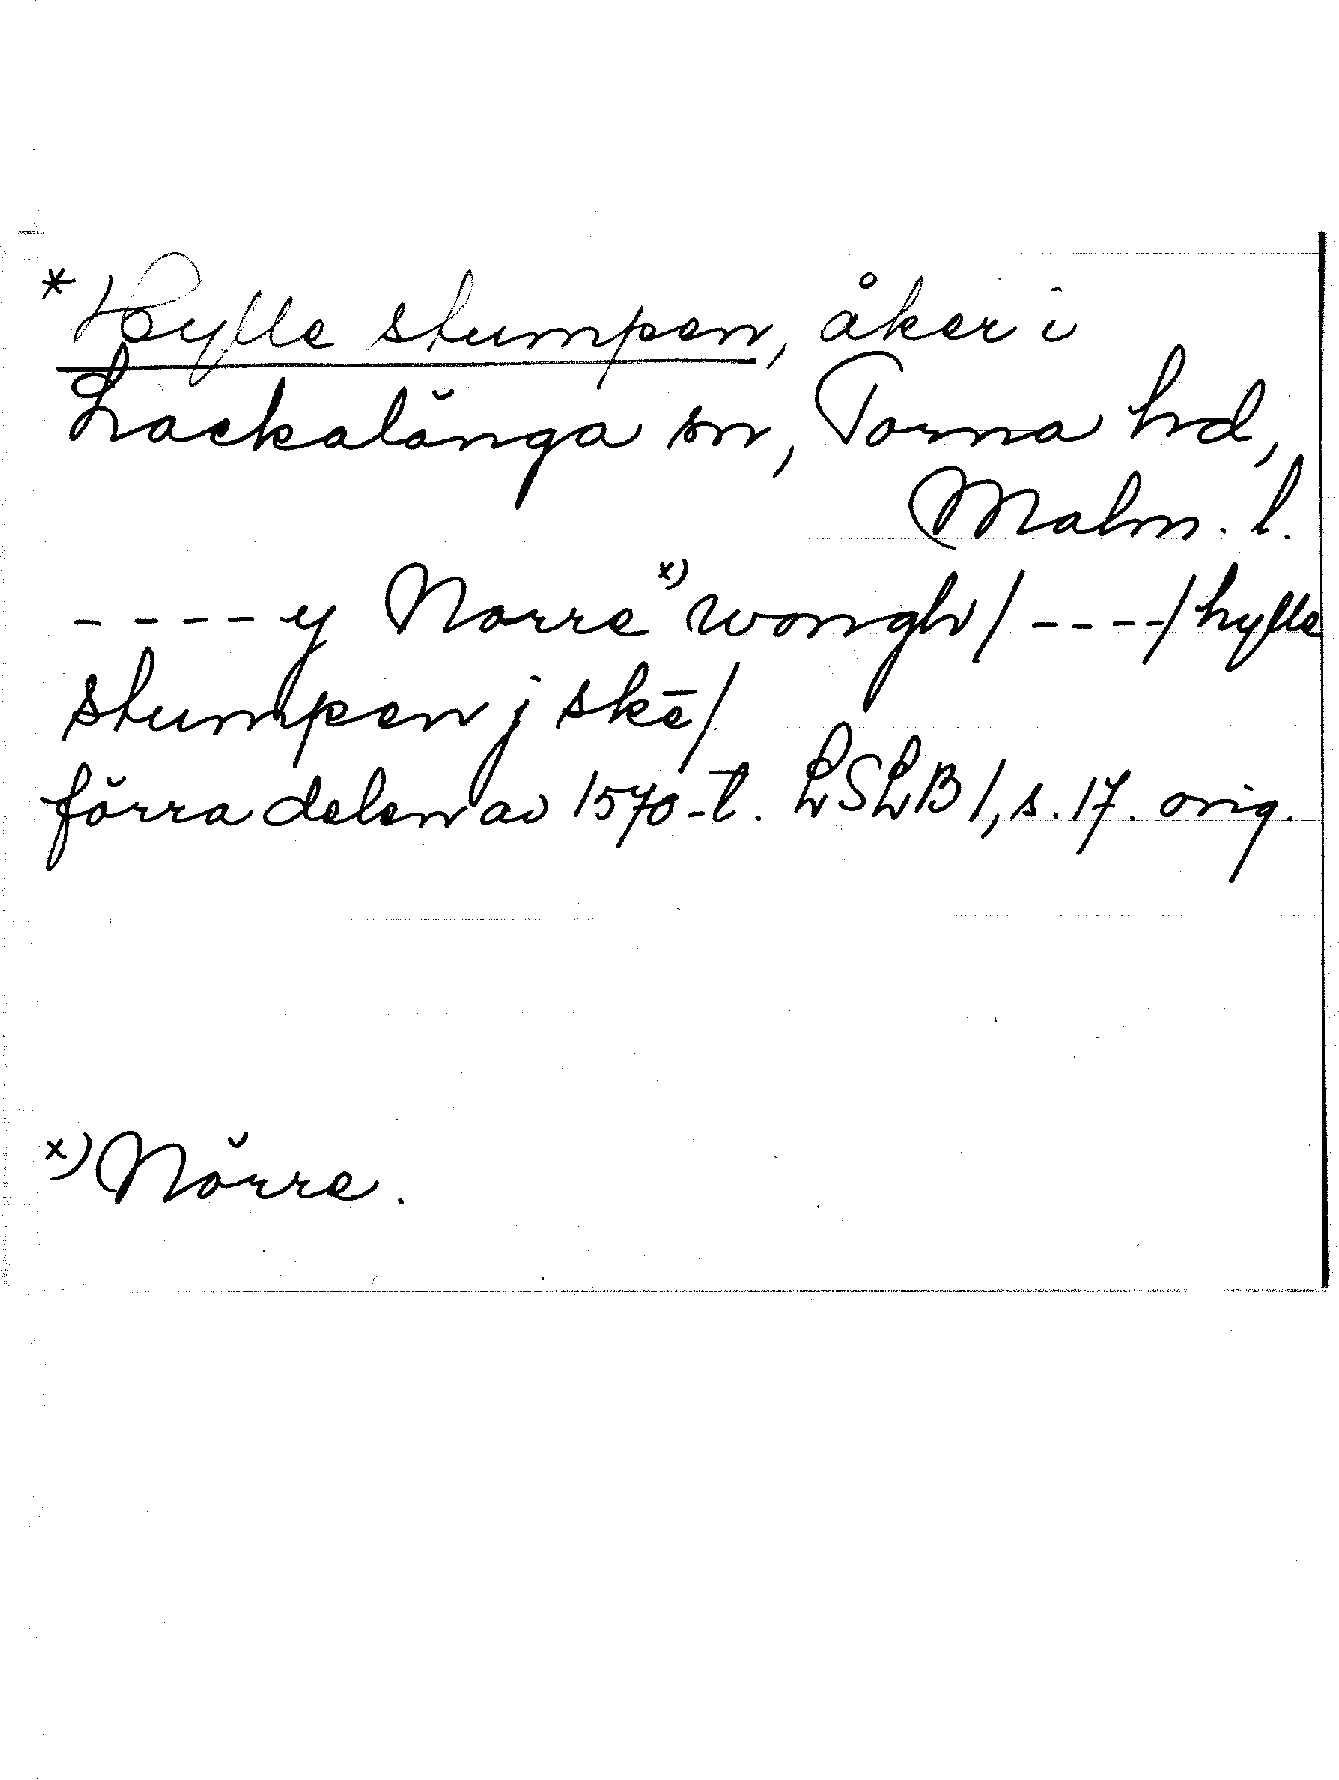 * Hylle stumpen, åker i
Lackalånga sn, Torna hd,
Malm. l.
- - - - y Norre x) wongh/ - - - -/ hylle
stumpen j skē/
förra delen av 1570-t. LSLB 1, s. 17. orig.
x) Nörre.